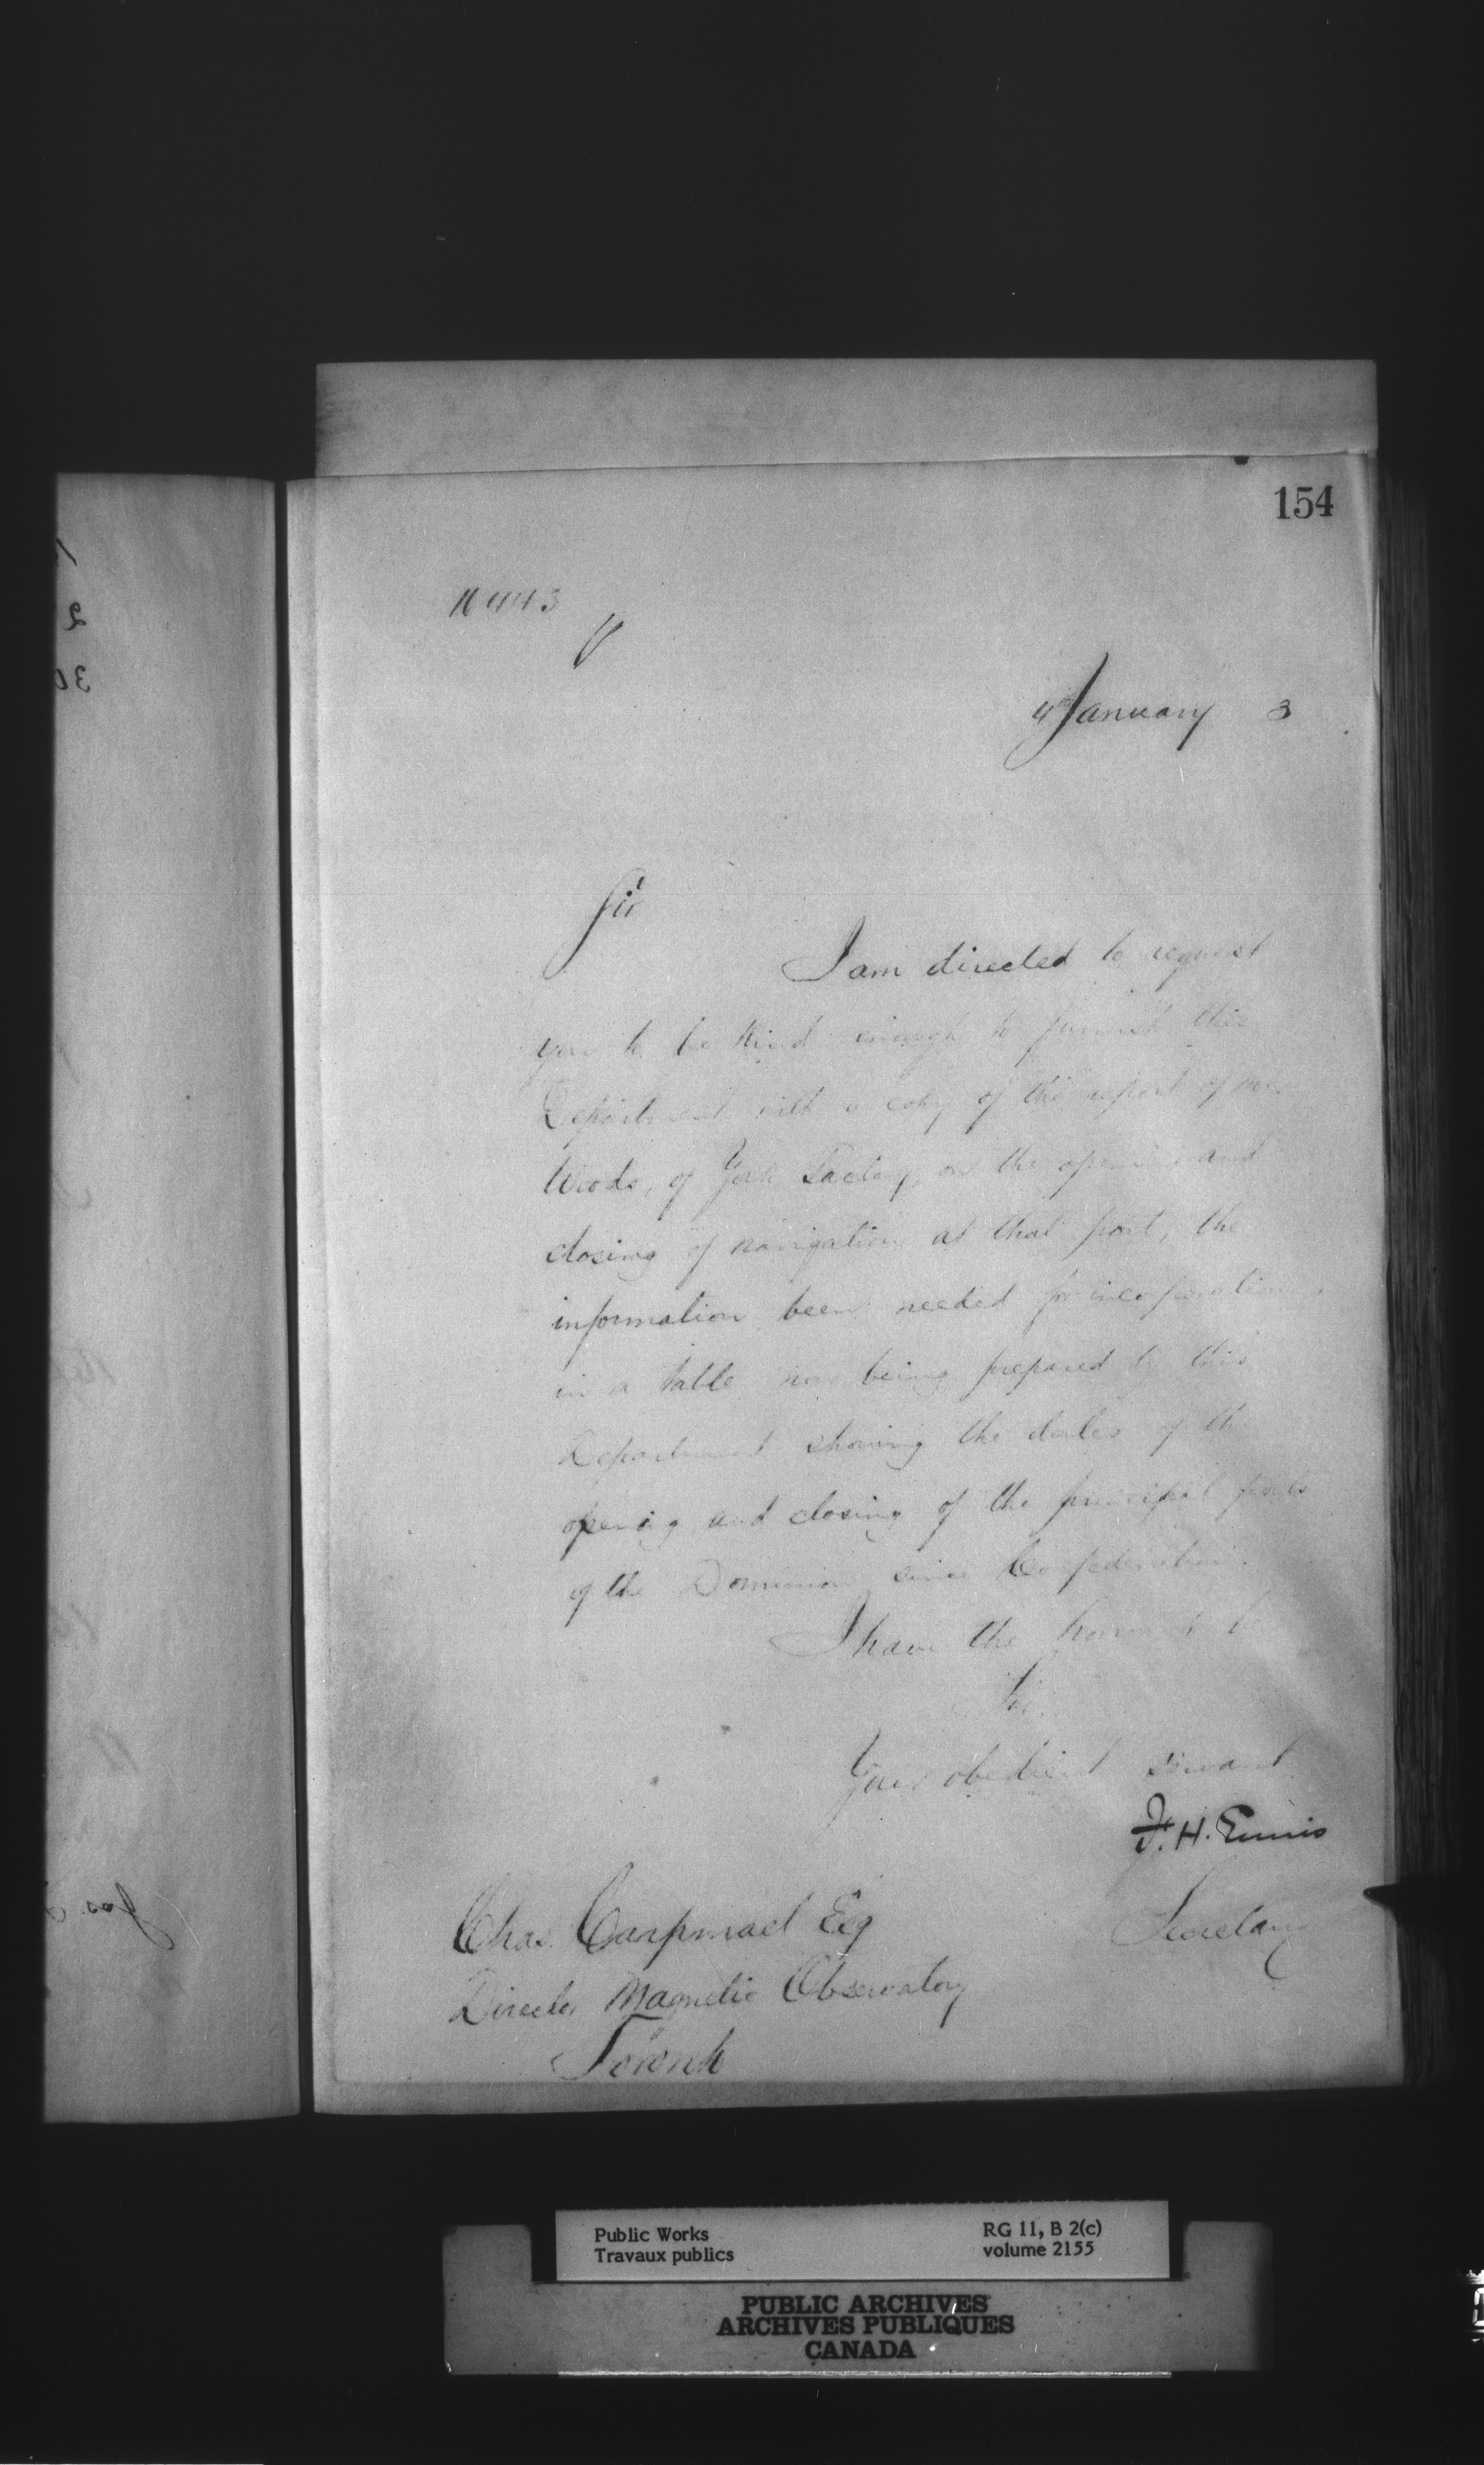 154
16443
4 January 3
Sir
I am directed to request
you to be kind enough to furnish this
Department with a copy of the report of Mr
Woods, of York Factory, on the opening and
closing of navigation at that port, the
information been needed for incorporation
in a table now being prepared by this
Department showing the dates of the
opening and closing of the principal ports
of the Dominion since Confederation.
I have the honor to be
Sir
Your obedient servant
F. H. Ennis
Secretary
Chas. Carpmael Esq
Director Magnetic Observatory
Toronto
Public Works
Travaux publics
RG 11, B 2(c)
volume 2155
PUBLIC ARCHIVES
ARCHIVES PUBLIQUES
CANADA